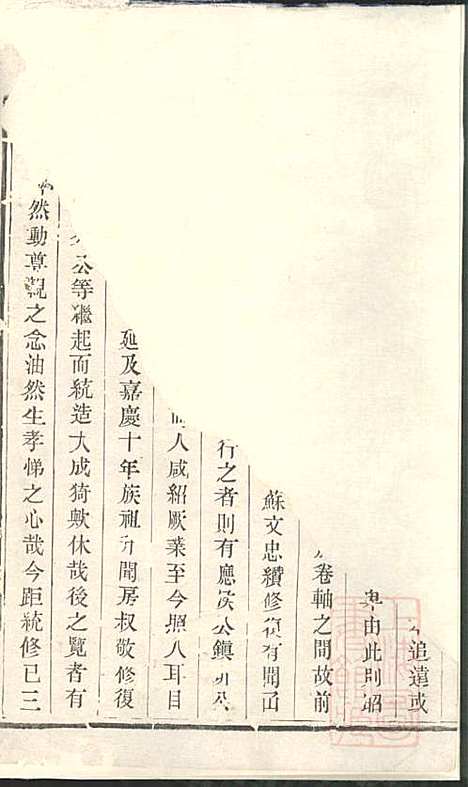 追遠或
由此則昭
卷軸之間故前
蘇文忠纘修復有聞
行之者則有應侯公鎮
人咸紹厥業至今照人耳目
延及嘉慶十年族祖升聞房叔敬修復
公等繼起而統造大成猗歟休哉後之覽者有
然動尊親之念油然生孝悌之心哉今距統修已三